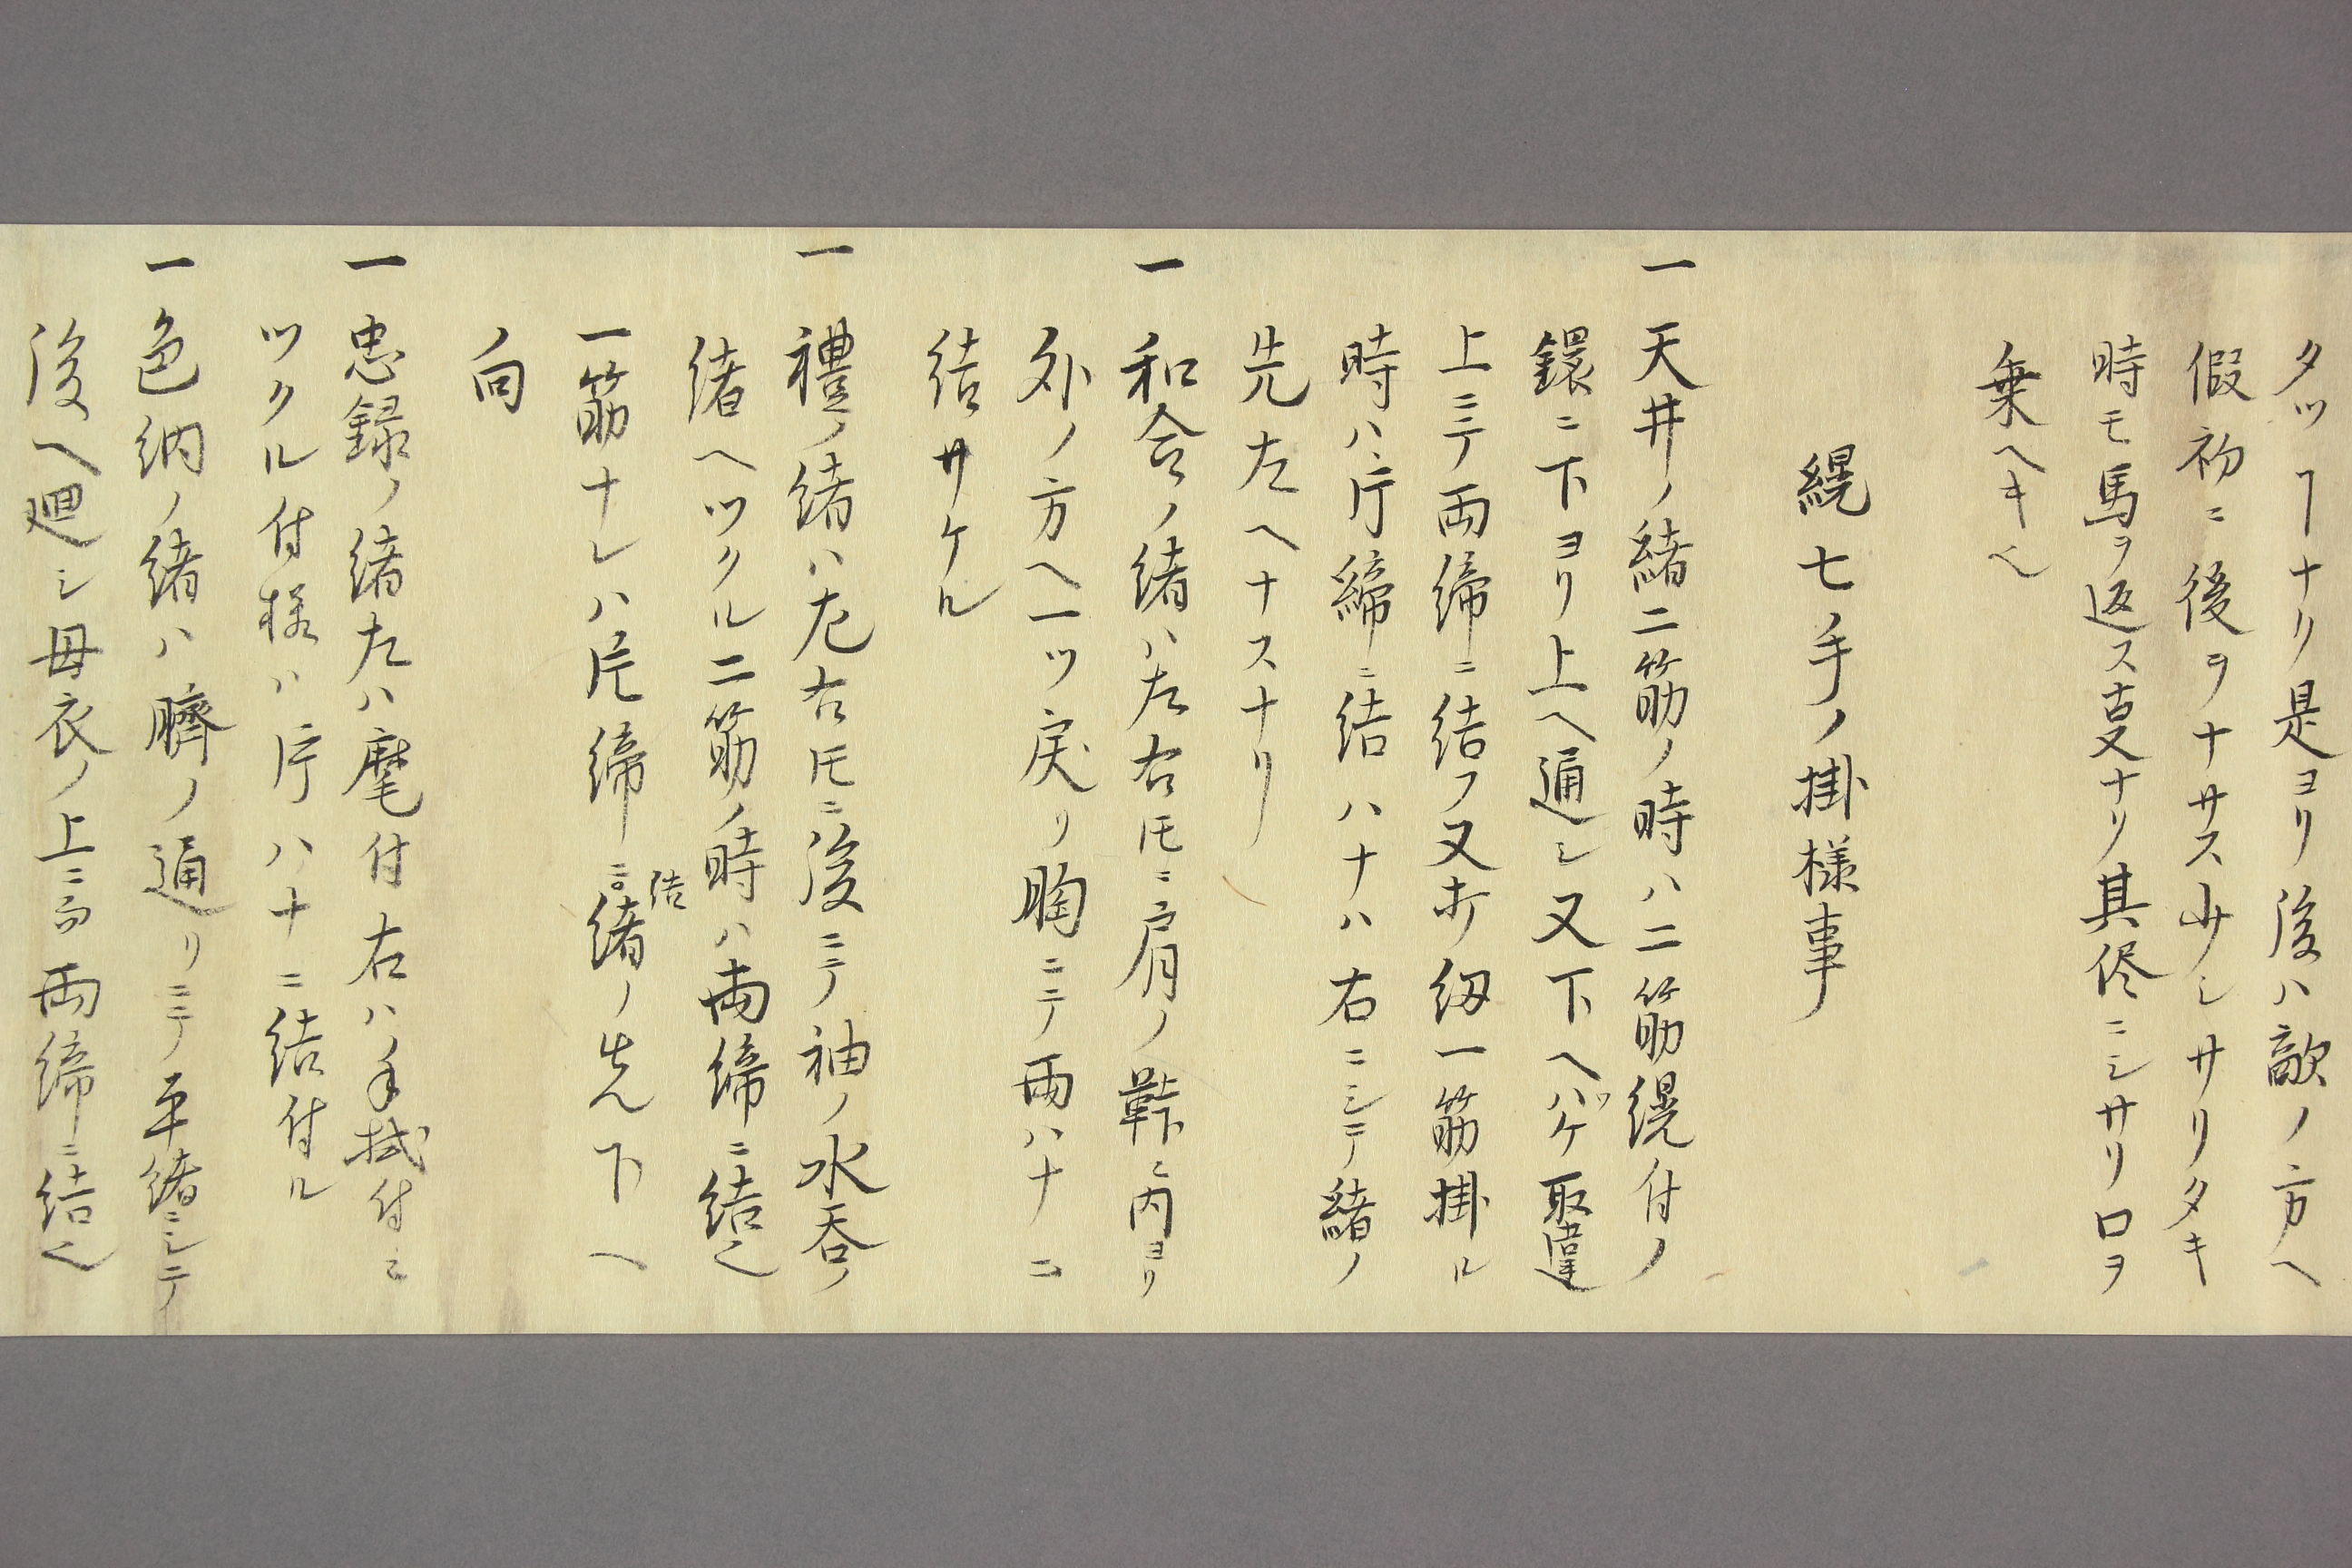 タツヿナリ是ヨリ後ハ敵ノ方ヘ
假初ニ後ヲナサス少シサリタキ
時モ馬ヲ返ス叓ナリ其侭ニシサリロヲ
乗ヘキ也
縨七手ノ掛様事
一天井ノ緒二筋ノ時ハ二筋縨付ノ
鐶ニ下ヨリ上ヘ通シ又下ヘハヅケ取違
上ニテ両締ニ結フ又ホ紐一筋掛ル
時ハ片締ニ結ハナハ右ニシテ緒ノ
先左ヘナスナリ
一和合ノ緒ハ左右𪜈ニ肩ノ鞐ニ内ヨリ
外ノ方ヘ一ツ戻リ胸ニテ両ハナニ
結サケル
一禮ノ緒ハ左右𪜈ニ後ニテ袖ノ水呑ノ
緒ヘツクル二筋ノ時ハ両締ニ結也
一筋ナレハ片締ニ結緒ノ先下ヘ
向
一忠録ノ緒左ハ麾付右ハ手拭付ニ
ツクル付様ハ片ハナニ結付ル
一色納ノ緒ハ臍ノ通リニテ平緒ニシテ
後ヘ廻シ母衣ノ上ニ而両締ニ結也